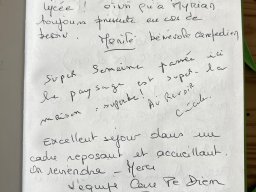 lycée ! ainsi qu'à Myriam
toujours présente au cas de
besoin. Merité bénévole campedien
Super Semaine passée ici
le paysage est super - la
maison, superbe !
Au Revoir
Cécile
Excellent séjour dans un
cadre reposant et accueillant.
on reviendra - Merci
L'équipe Care Pe Diem